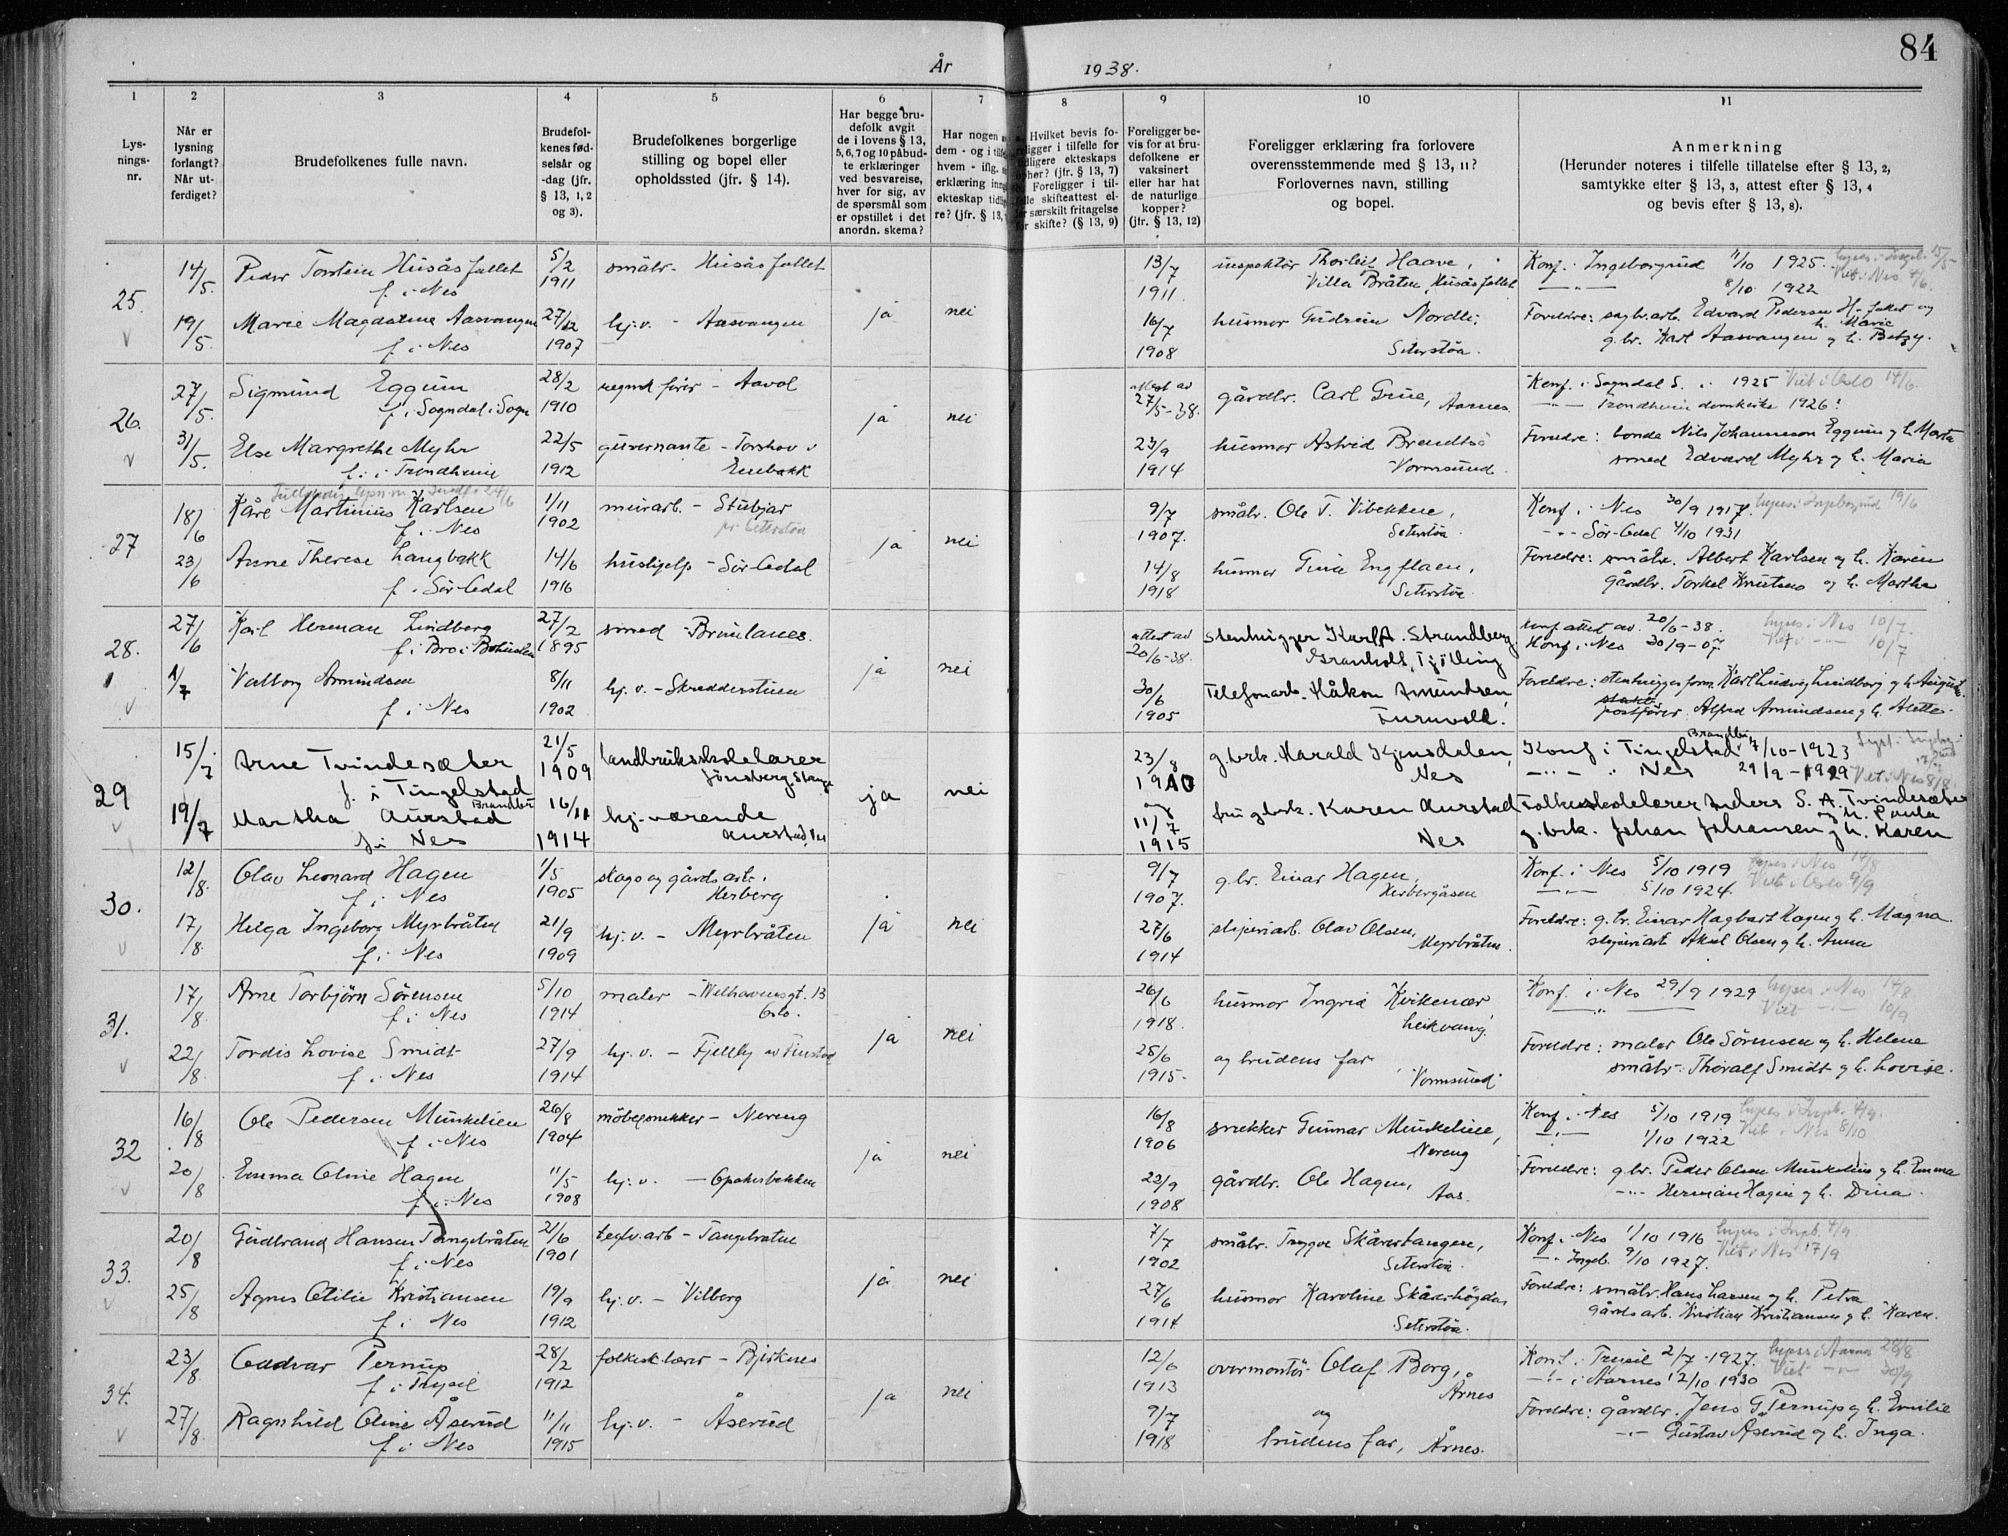 84
År 1938.
1 2 3 4 5 6 7 8 9 10 11
Lysningsnr.
Når er lysning forlangt? Når utferdiget?
Brudefolkenes fulle navn.
Brudefolkenes fødselsår og -dag (jfr. § 13, 1, 2 og 3).
Brudefolkenes borgerlige stilling og bopel eller opholdssted (jfr. § 14).
Har begge brudefolk avgit de i lovens § 13, 5, 6, 7 og 10 påbudte erklæringer ved besvarelse, hver for sig, av de spørsmål som er opstillet i det anordn. skema?
Har nogen
dem - og i
hvem - iflg.
erklæring
ekteskap
re? (jfr. § 13,
Hvilket bevis fo-
religger i tilfelle for
tidligere ekteskaps
ophør? (jfr. § 13, 7)
Foreligger i til-
felle skifteattest el-
ler særskilt fritagelse
for skifte? (§ 13, 9)
Foreligger bevis for at brudefolkene er vaksinert eller har hat de naturlige kopper? (jfr. § 13, 12)
Foreligger erklæring fra forlovere overensstemmende med § 13, 11? Forlovernes navn, stilling og bopel.
Anmerkning
(Herunder noteres i tilfelle tillatelse efter § 13, 2, samtykke efter § 13, 3, attest efter § 13, 4 og bevis efter § 13, 8).
25. 14/5. Peder Torstein Husåsfallet 5/2 småbr. Husåsfallet 13/7 inspektør Thorleif Haave, Konf. i Ingeborgrud 4/10 1925
f. i Nes 1911 1911. Villa Bråten, Husåsfallet 8/10 1922
19/5 Marie Magdalene Aasvangen 27/12 hj.v. - Aasvangen ja nei 16/7 husmor Gudrun Nordli, Foreldre: sagbr.arb. Edvard Pedersen H.fallet og h. Marie
f. i Nes 1907 1908 Seterstøa. g.br. Karl Aasvangen og h. Betzy.
26. 27/5. Sigmund Eggum 28/2 regnsk.fører - Aavol attest av gårdbr. Carl Grue, Konf. i Sogndal S. i 1925 Viet i Oslo 14/6.
f. i Sogndal i Sogn 1910 ja nei 27/5-38. Aarnes. Trondheim domkirke 1926.
31/5. Else Margrethe Myhr 22/5 guvernante - Torshov i 23/9 husmor Astrid Brendtsø Foreldre: bonde Nils Johannesson Eggum og h. Marta
f. i Trondheim 1912 Enebakk 1914 Vormsund. smed Edvard Myhr og h. Maria
27 18/6 Kåre Martinius Karlsen 1/11 murarb. - Stubjar 9/7 småbr. Ole T. Vibekkene, Konf. i Nes 30/9 1917. Lyses i Ingeborgrud 19/6
f. i Nes 1902 pr Seterstøa 1907. Seterstøa. Sør-Odal 4/10 1931
23/6 Anne Therese Langbakk 14/6 hushjelp - Sør-Odal ja nei 14/8 husmor Gina Engflaen, Foreldre: småbr. Albert Karlsen og h. Karen
f. i Sør-Odal 1916 1918 Seterstøa. gårdbr. Torkel Knutsen og h. Marthe
28. 27/6 Karl Herman Lindberg 27/2 smed - Brunlanes. attest av stenhugger Karl A. Strandberg, konf attest av 20/6-38. Lyses i Nes 10/7.
f. i Bro i Bohuslen 1895 20/6-38. Granholt, Tjølling Konf. i Nes 30/9-07 Viet 10/7
1/7 Valborg Amundsen 8/11 hj.v. - Skredderstuen ja nei 30/6 Telefonarb. Håkon Amundsen, Foreldre: stenhuggerform. Karl Ludvig Lindberg og h. August
f. i Nes 1902 1905 Furuvold. postfører Alfred Amundsen og h. Alette.
29 15/7 Arne Tvindesæter 21/5 landbruksskolelærer 23/8 g.brk. Harald Kjensdalen, Konf i Tingelstad, Brandbu 7/10-1923
f. i Tingelstad 1909 Jønsberg, Stange 1910 Nes Nes 29/9-1929 Viet i Nes 8/8.
Brandbu
19/7 Martha Aurstad 16/11 hj.værende ja nei 11/7 fru g.brk. Karen Aurstad Folkeskolelærer Anders S. A. Tvindesæter og h. Paula
f. i Nes 1914 Aurstad, Nes 1915 Nes g.brk. Johan Johansen og h. Karen
30. 12/8. Olav Leonard Hagen 1/5 skogs og gårdsarb. 9/7 g.br. Einar Hagen, Konf. i Nes 5/10 1919 Lyses i Nes 14/8
f. i Nes 1905 Herberg 1907. Herbergåsen 5/10 1924. Viet i Oslo 9/9
17/8 Helga Ingeborg Myrbråten 21/9 hj.v. - Myrbråten ja nei 27/6 sliperiarb. Olav Olsen, Foreldre: g.br. Einar Hagbart Hagen og h. Magna
f. i Nes 1909 1914 Myrbråten. sliperiarb Aksel Olsen og h. Anna
31. 17/8. Arne Torbjørn Sørensen 5/10 maler - Welhavensgt. 13 26/6 husmor Ingrid Kvikenær Konf. i Nes 29/9 1929 Lyses i Nes 14/8
f. i Nes 1914 Oslo. 1918. Leikvang Viet 10/9
22/8. Tordis Lovise Smidt 27/9 hj.v. - Fjellby av Finstad ja nei 25/6 og brudens far Foreldre: maler Ole Sørensen og h. Helene
f. i Nes 1914 1915. Vormsund småbr. Thoralf Smidt og h. Lovise.
32 16/8 Ole Pedersen Munkelien 26/8 møbelsnekker - Nereng 16/8 snekker Gunnar Munkelien, Konf. i Nes 5/10 1919
f. i Nes 1904 1906 Nereng 1/10 1922 Viet i Nes 8/10
20/8 Emma Oline Hagen 11/5 hj.v. - Opakerbekken ja nei 22/9 gårdbr. Ole Hagen, Foreldre: g.br. Peder Olsen Munkelien og h. Emma
f. i Nes 1908 1908 Aas. Herman Hagen og h. Dina.
33. 20/8 Gudbrand Hansen Tangebråten 21/6 teglv.arb - Tangebråten 7/7 småbr. Trygve Skårertangen, Konf. i Nes 1/10 1916
f. i Nes 1901 1902 Seterstøa. Ingeb. 9/10 1927. Viet i Nes 17/9
25/8 Agnes Otilie Kristiansen 19/9 hj.v. - Vilberg ja nei 27/6 husmor Karoline Skårerhøgda Foreldre: småbr. Hans Hansen og h. Petra
f. i Nes 1912 1914 Seterstøa. gårdsarb. Kristian Kristiansen og h. Karen.
34. 23/8 Oddvar Pernup 28/2 folkesk.lærer - Bjerknes 12/6 overmontør Olaf Borg, Konf. i Trysil 2/7 1927. Lyses i Aarnes 28/8
f. i Trysil 1912 1913 Årnes i Aarnes 12/10 1930
27/8. Ragnhild Oline Åserud 11/11 hj.v. - Åserud ja nei 9/7 og Foreldre: gårdbr. Jens G. Pernup og h. Emilie
f. i Nes 1915 1918 brudens far, Årnes. Gustav Åserud og h. Inga.